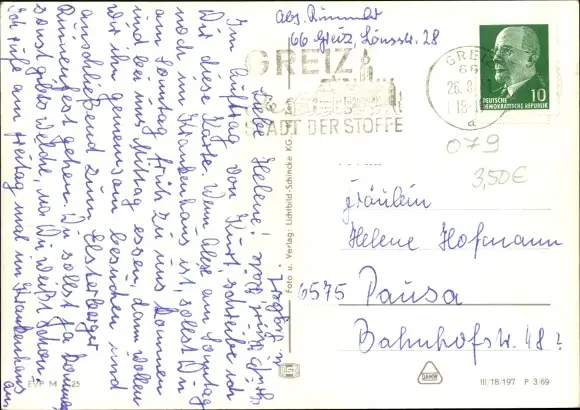 Abs. Rümmler
66 Greiz, Lönsstr. 28
GREIZ
STADT DER STOFFE
GREIZ
66
26.8.
18
a
10
DEUTSCHE
DEMOKRATISCHE REPUBLIK
079
3,50€
Fräulein
Helene Hofmann
6575 Pausa
Bahnhofstr. 48?
Liebe Helene!
Im Auftrag von Kurt schreibe ich
Dir diese Karte. Wenn Alex am Sonntag
noch im Krankenhaus ist, sollst Du
am Sonntag früh zu uns kommen
und bei uns Mittag essen, dann wollen
wir ihn gemeinsam besuchen und
anschließend zum Elsterberger
Ruinenfest gehen. Du sollst ja kommen
sonst gibts Welche, na Du weißt schon.
Ich rufe am Freitag mal im Krankenhaus
an.
Foto u. Verlag: Lichtbild-Schincke KG Zeitz
EVP M 25
DEWAG
III/18/197 P 3/69